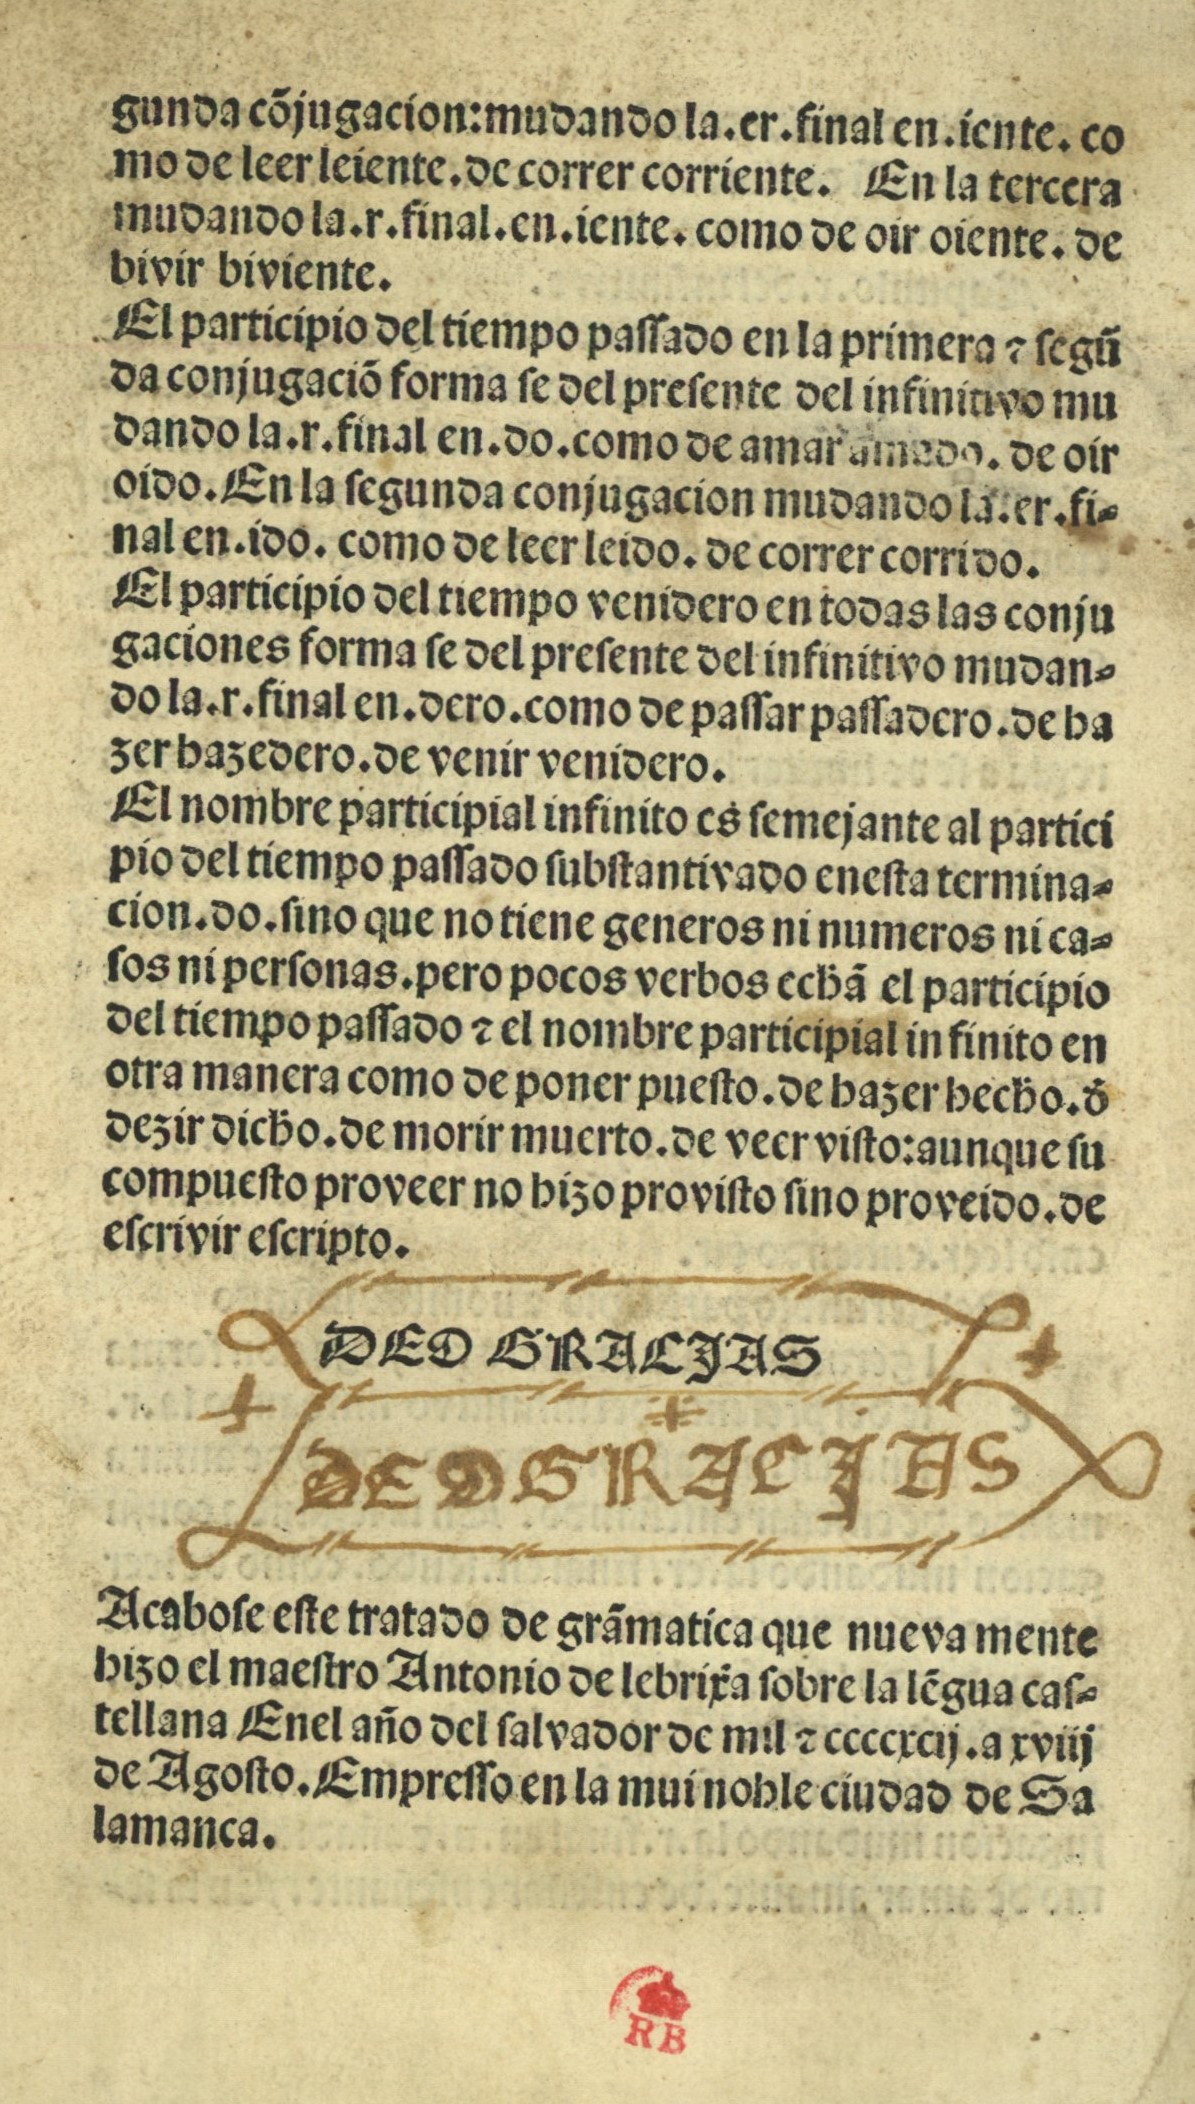 gunda cõjugacion:mudando la.er.final en.iente. co
mo de leer leiente.de correr corriente. En la tercera
mudando la.r.final.en.iente. como de oir oiente. de
bivir biviente.
El participio del tiempo paſſado en la primera ⁊ ſegũ
da conjugaciõ forma ſe del preſente del infinitivo mu
dando la.r.final en.do.como de amar amado. de oir
oido.En la ſegunda conjugacion mudando la.er.fi-
nal en.ido. como de leer leido. de correr corrido.
El participio del tiempo venidero en todas las conju
gaciones forma ſe del preſente del infinitivo mudan-
do la.r.final en.dero.como de paſſar paſſadero.de ha
zer hazedero.de venir venidero.
El nombre participial infinito es ſemejante al partici
pio del tiempo paſſado ſubſtantivado eneſta termina-
cion.do.ſino que no tiene generos ni numeros ni ca-
ſos ni perſonas.pero pocos verbos echã el participio
del tiempo paſſado ⁊ el nombre participial infinito en
otra manera como de poner pueſto.de hazer hecho.đ
dezir dicho.de morir muerto.de veer viſto:aunque ſu
compueſto proveer no hizo proviſto ſino proveido.de
eſcrivir eſcripto.
DEO GRACIAS
DEO GRACIAS
Acaboſe eſte tratado de grãmatica que nueva mente
hizo el maeſtro Antonio de lebrixa ſobre la lẽgua caſ-
tellana Enel año del ſalvador de mil ⁊ ccccxcij.a xviij
de Agoſto.Empreſſo en la mui noble ciudad de Sa
lamanca.
RB